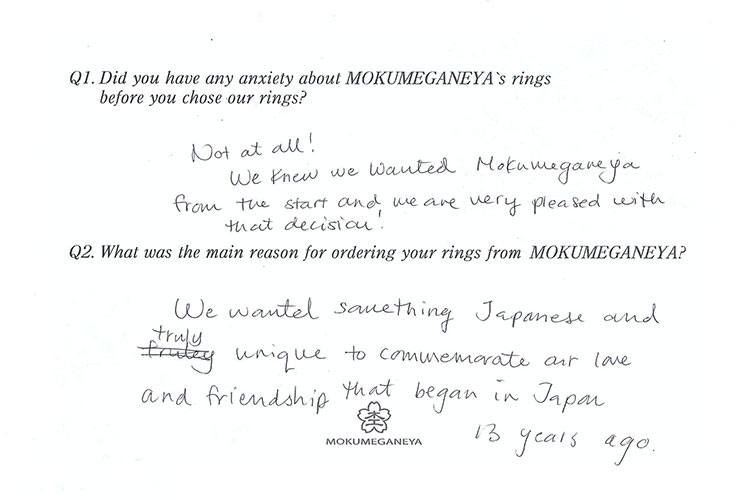 Q1. Did you have any anxiety about MOKUMEGANEYA`s rings
before you chose our rings?
Not at all!
We knew we wanted Mokumeganeya
from the start and we are very pleased with
that decision!
Q2. What was the main reason for ordering your rings from MOKUMEGANEYA?
We wanted something Japanese and
truly
unique to commemorate our love
and friendship that began in Japan
13 years ago.
MOKUMEGANEYA